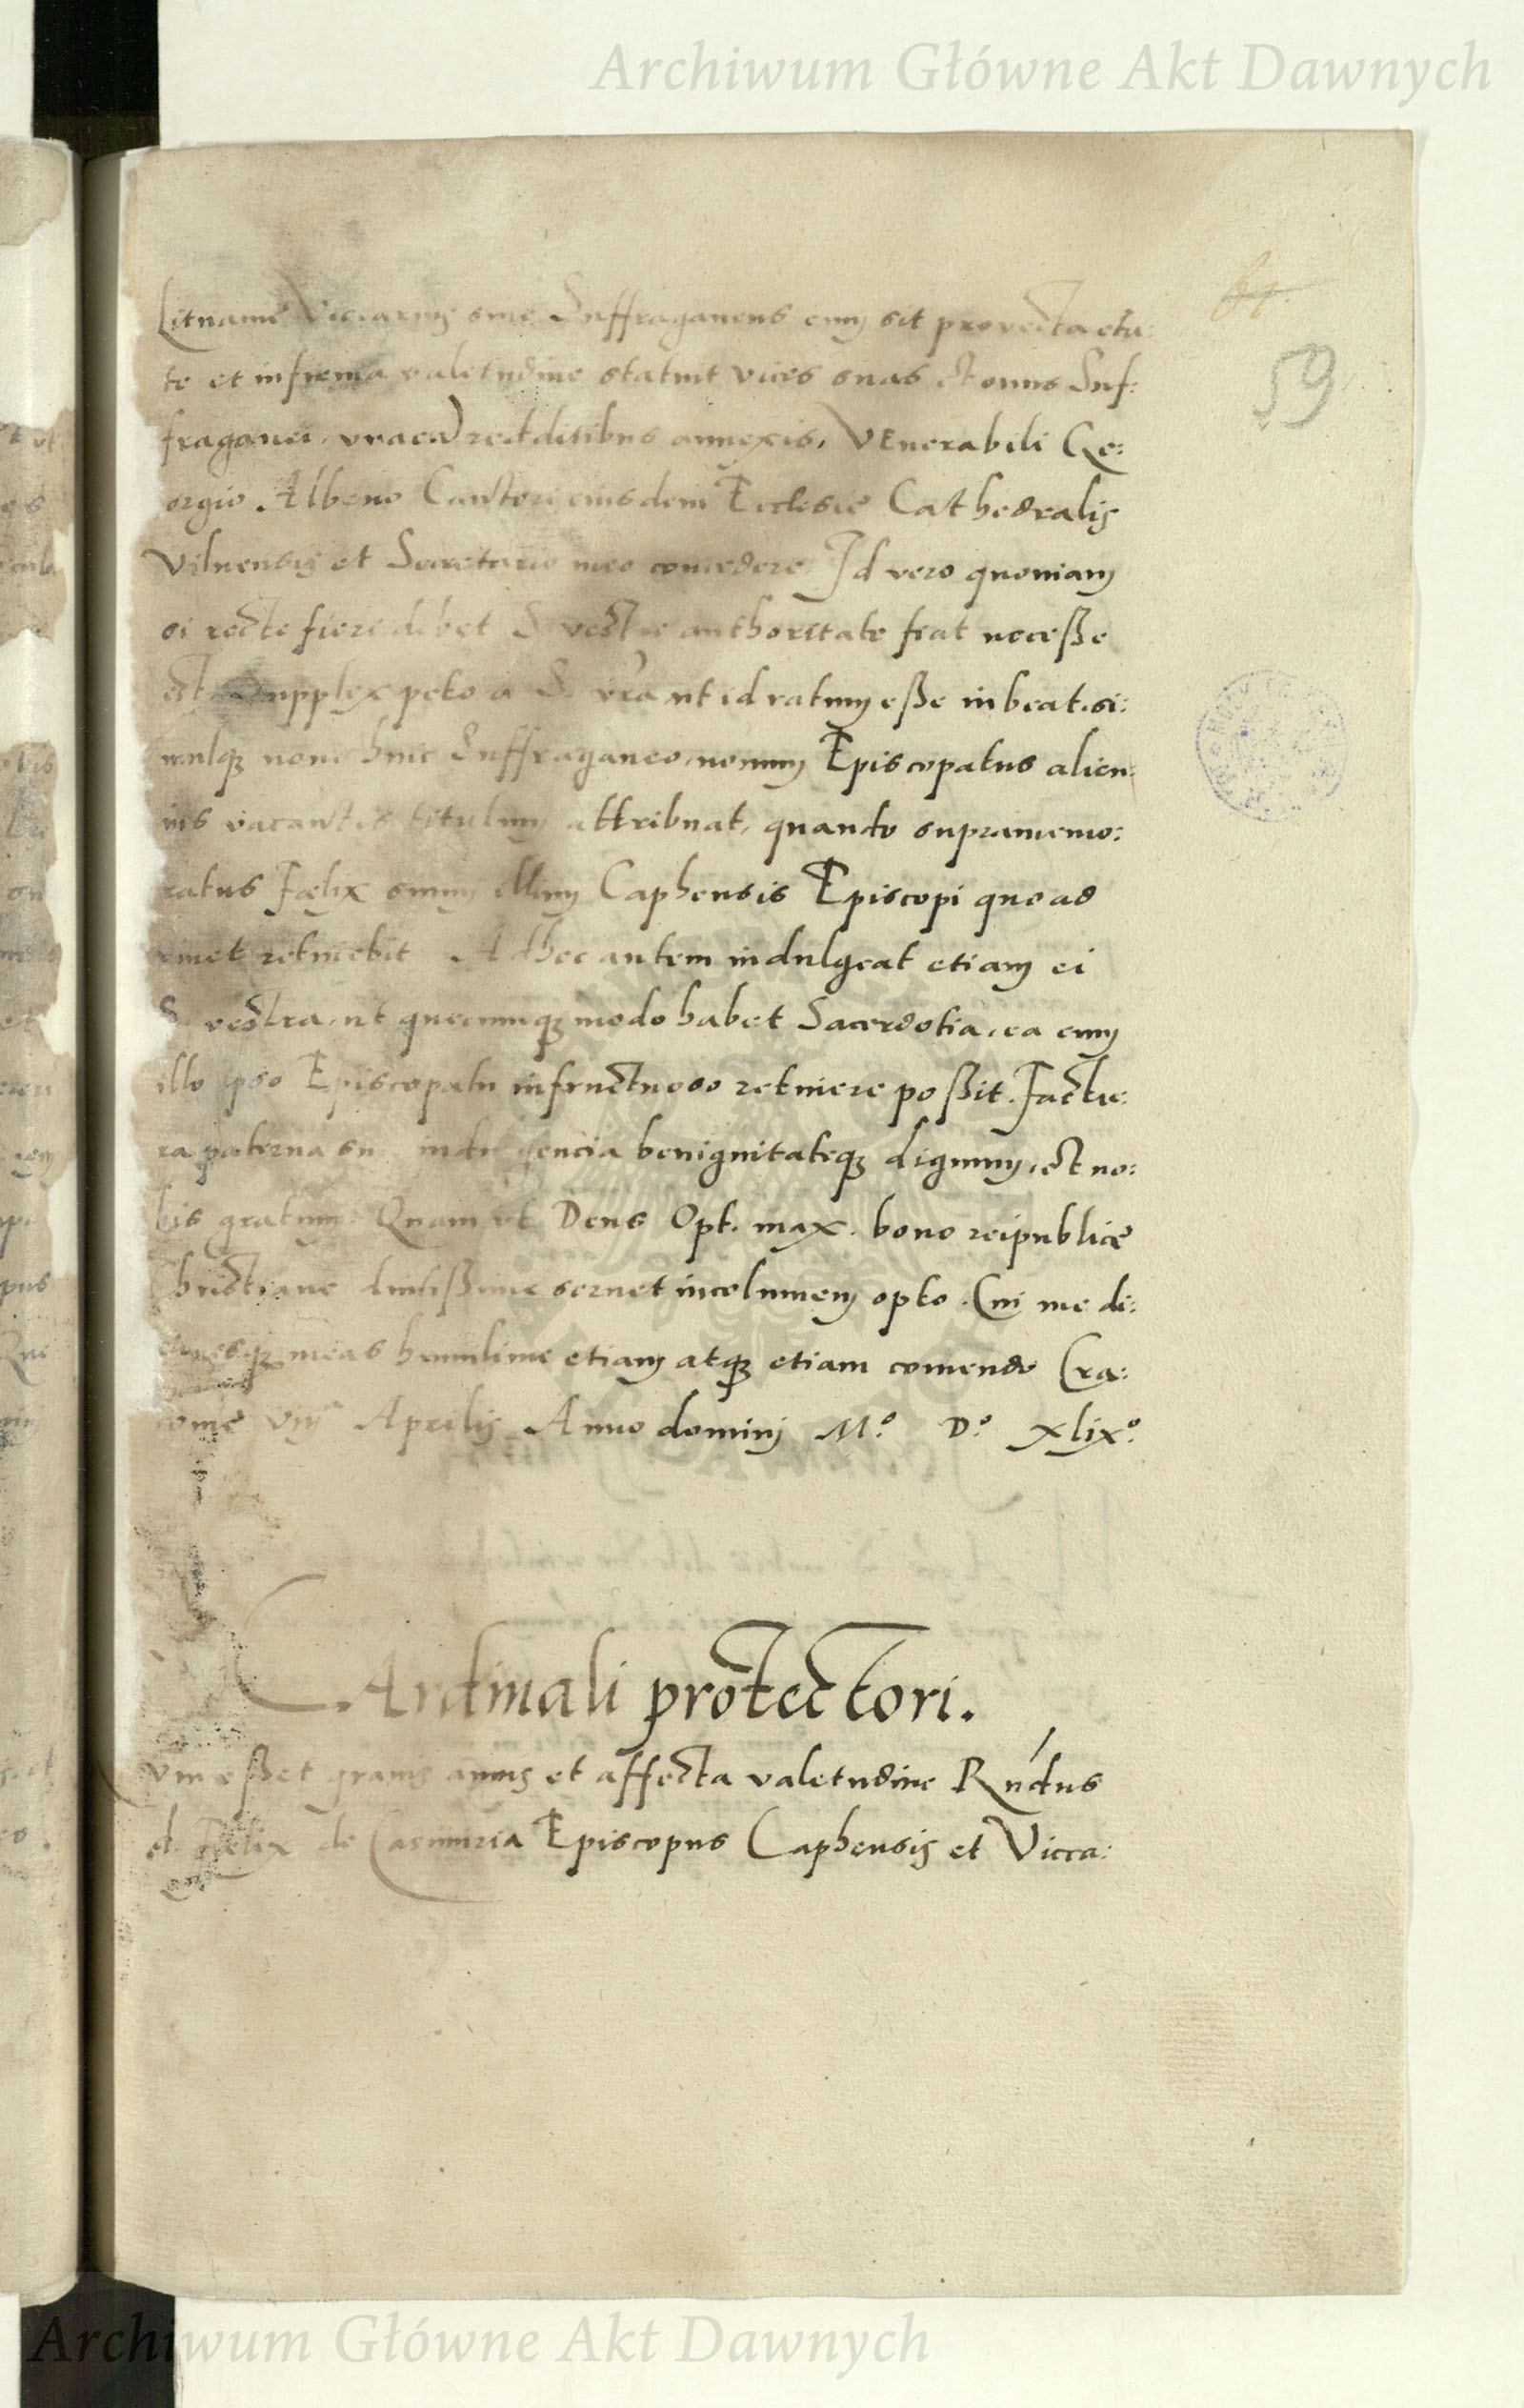 Archiwum Główne Akt Dawnych
61.
59
Lituanie Viccarius sive Suffraganeus cum sit provecta eta:
te et infirma valetudine statuit vices suas et onus Suf:
fraganei, una cum redditibus annexis, Venerabili Ge:
orgio Albeno Cantori eiusdem Ecclesie Cathedralis
Vilnensis et Secretario meo concedere. Id vero quoniam
si recte fieri debet S. vestre authoritate fiat necesse
est. Supplex peto a S. vra ut id ratum esse iubeat. si:
mulq; novo huic Suffraganeo, novum Episcopatus alicu:
ius vacantis titulum attribuat, quando supramemo:
ratus Fælix suum illum Caphensis Episcopi quoad
vivet retinebit. Adhec autem indulgeat etiam ei
S. vestra, ut quecunq; modo habet Sacerdotia, ea cum
illo ipso Episcopatu infructuoso retinere possit. Factu:
ra paterna su indulgencia benignitateq; dignum, et no:
bis gratum. Quam ut Deus Opt. max. bono reipublice
Christiane diutissime servet incolumem opto. Cui me di:
cionesq; meas humilime etiam atq; etiam comendo Cra:
covie viij Aprilis Anno domini M.º D.º xlix.º
CArdinali protectori.
Cum esset gravis annis et affecta valetudine Rndus
d. Fælix de Casimiria Episcopus Caphensis et Vicca:
Archiwum Główne Akt Dawnych